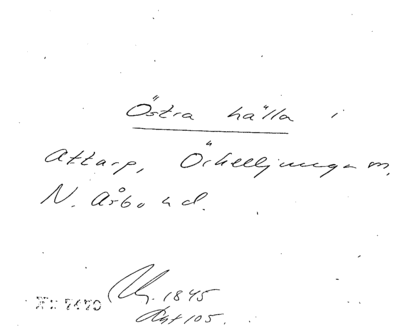 Östra hälla i
Attarp, Örkelljunga sn.
N. Åsbo hd.
1845